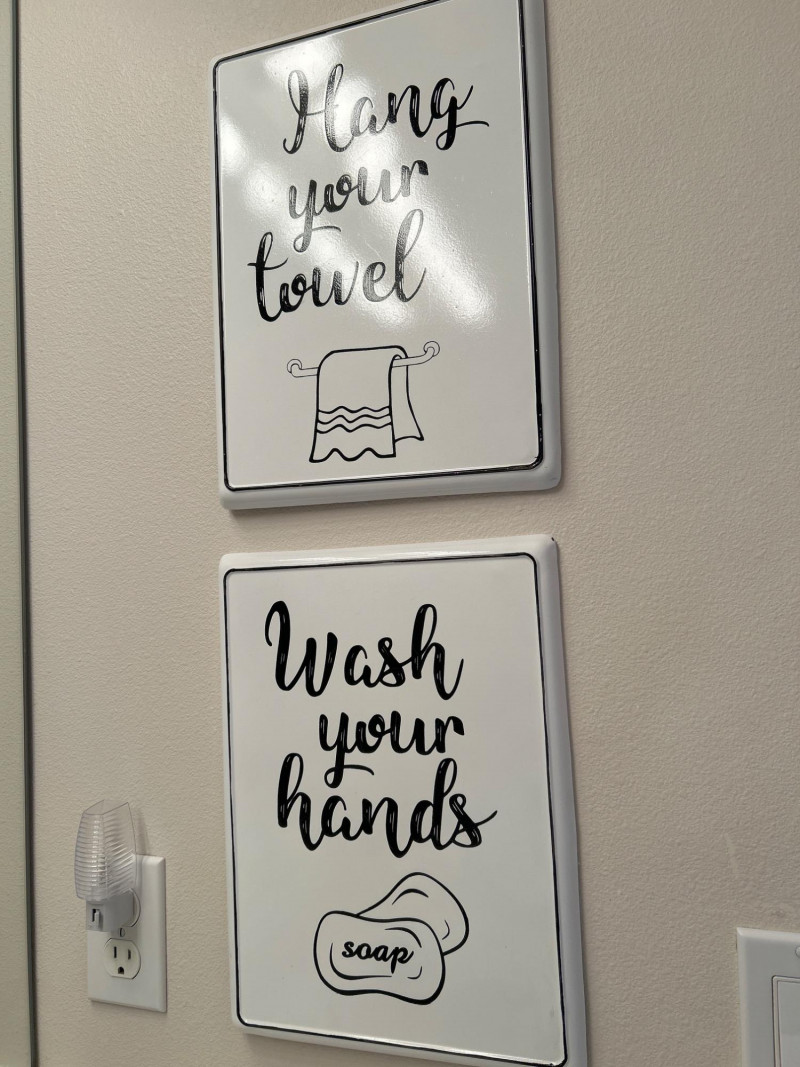 Hang
your
towel
Wash
your
hands
soap